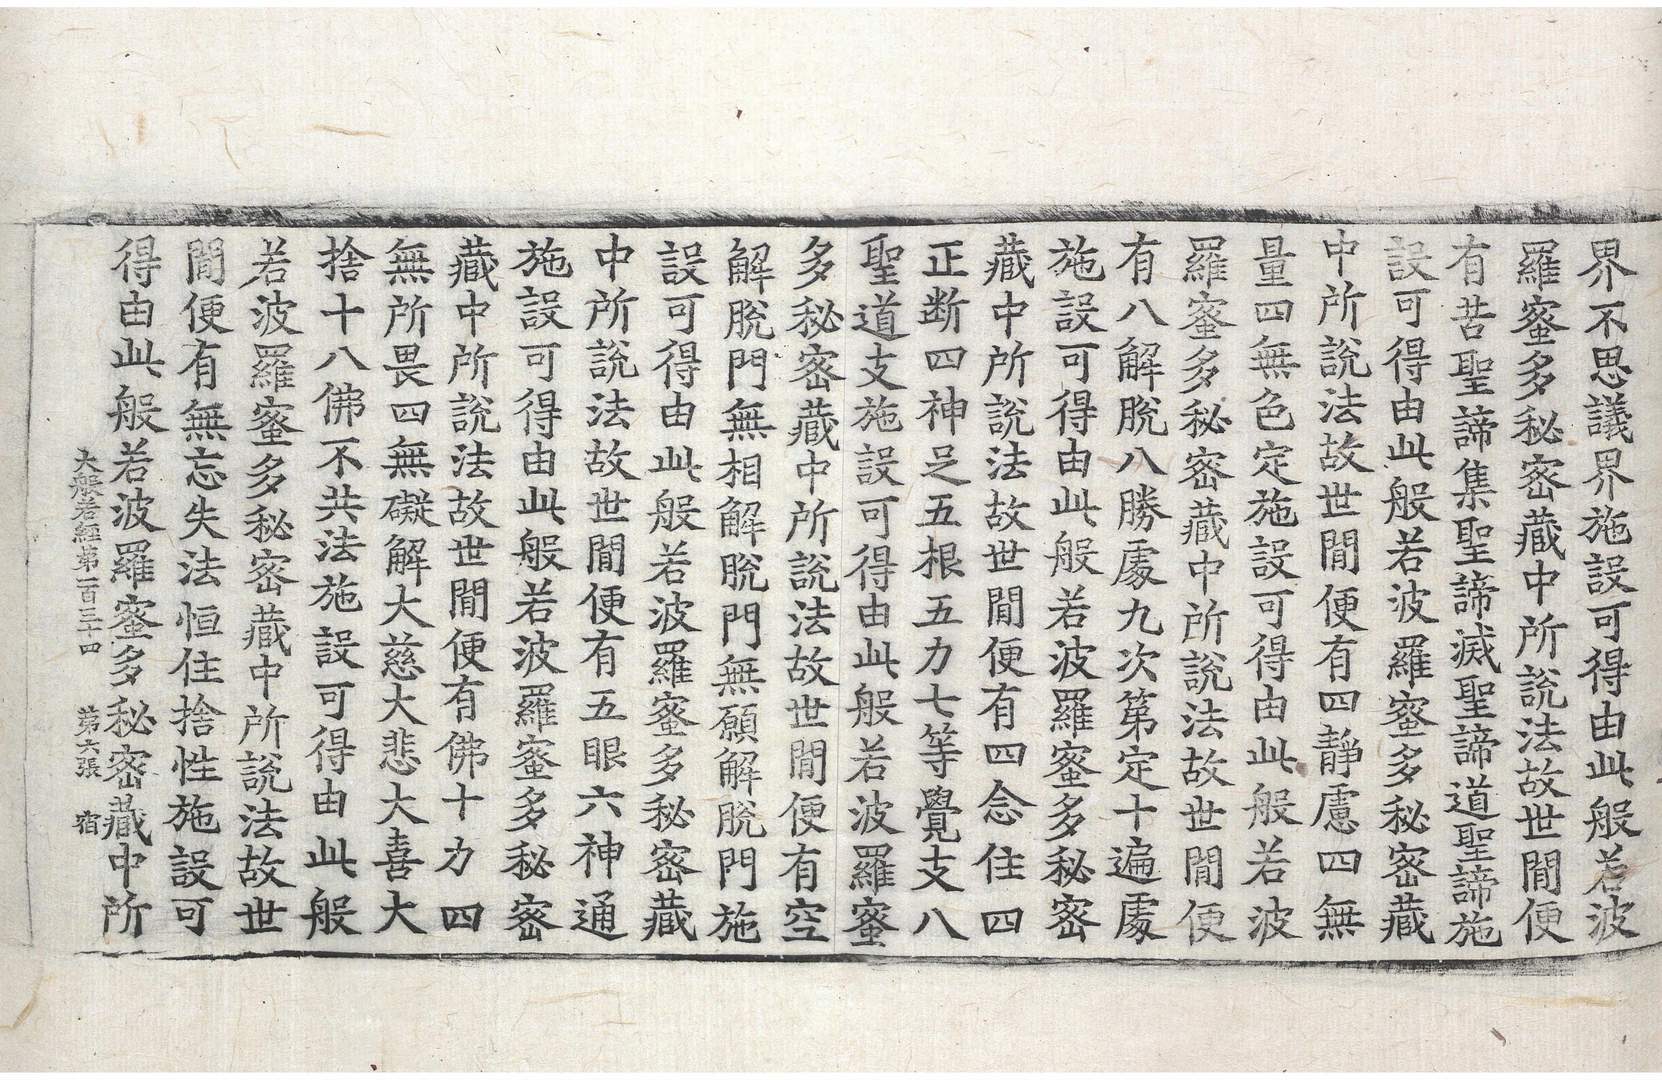 界不思議界施設可得由此般若波
羅蜜多秘密藏中所說法故世間便
有苦聖諦集聖諦滅聖諦道聖諦施
設可得由此般若波羅蜜多秘密藏
中所說法故世間便有四靜慮四無
量四無色定施設可得由此般若波
羅蜜多秘密藏中所說法故世間便
有八解脫八勝處九次第定十遍處
施設可得由此般若波羅蜜多秘密
藏中所說法故世間便有四念住四
正断四神足五根五力七等覺支八
聖道支施設可得由此般若波羅蜜
多秘密藏中所說法故世間便有空
解脫門無相解脫門無願解脫門施
設可得由此般若波羅蜜多秘密藏
中所說法故世間便有五眼六神通
施設可得由此般若波羅蜜多秘密
藏中所說法故世間便有佛十力四
無所畏四無礙解大慈大悲大喜大
捨十八佛不共法施設可得由此般
若波羅蜜多秘密藏中所說法故世
間便有無忘失法恒住捨性施設可
得由此般若波羅蜜多秘密藏中所
大般若經第一百三十四 第六張 宿